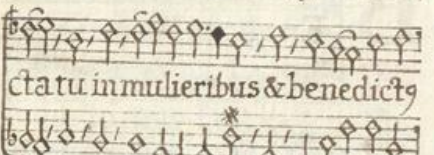 cta tu in mulieribus & benedictꝰ